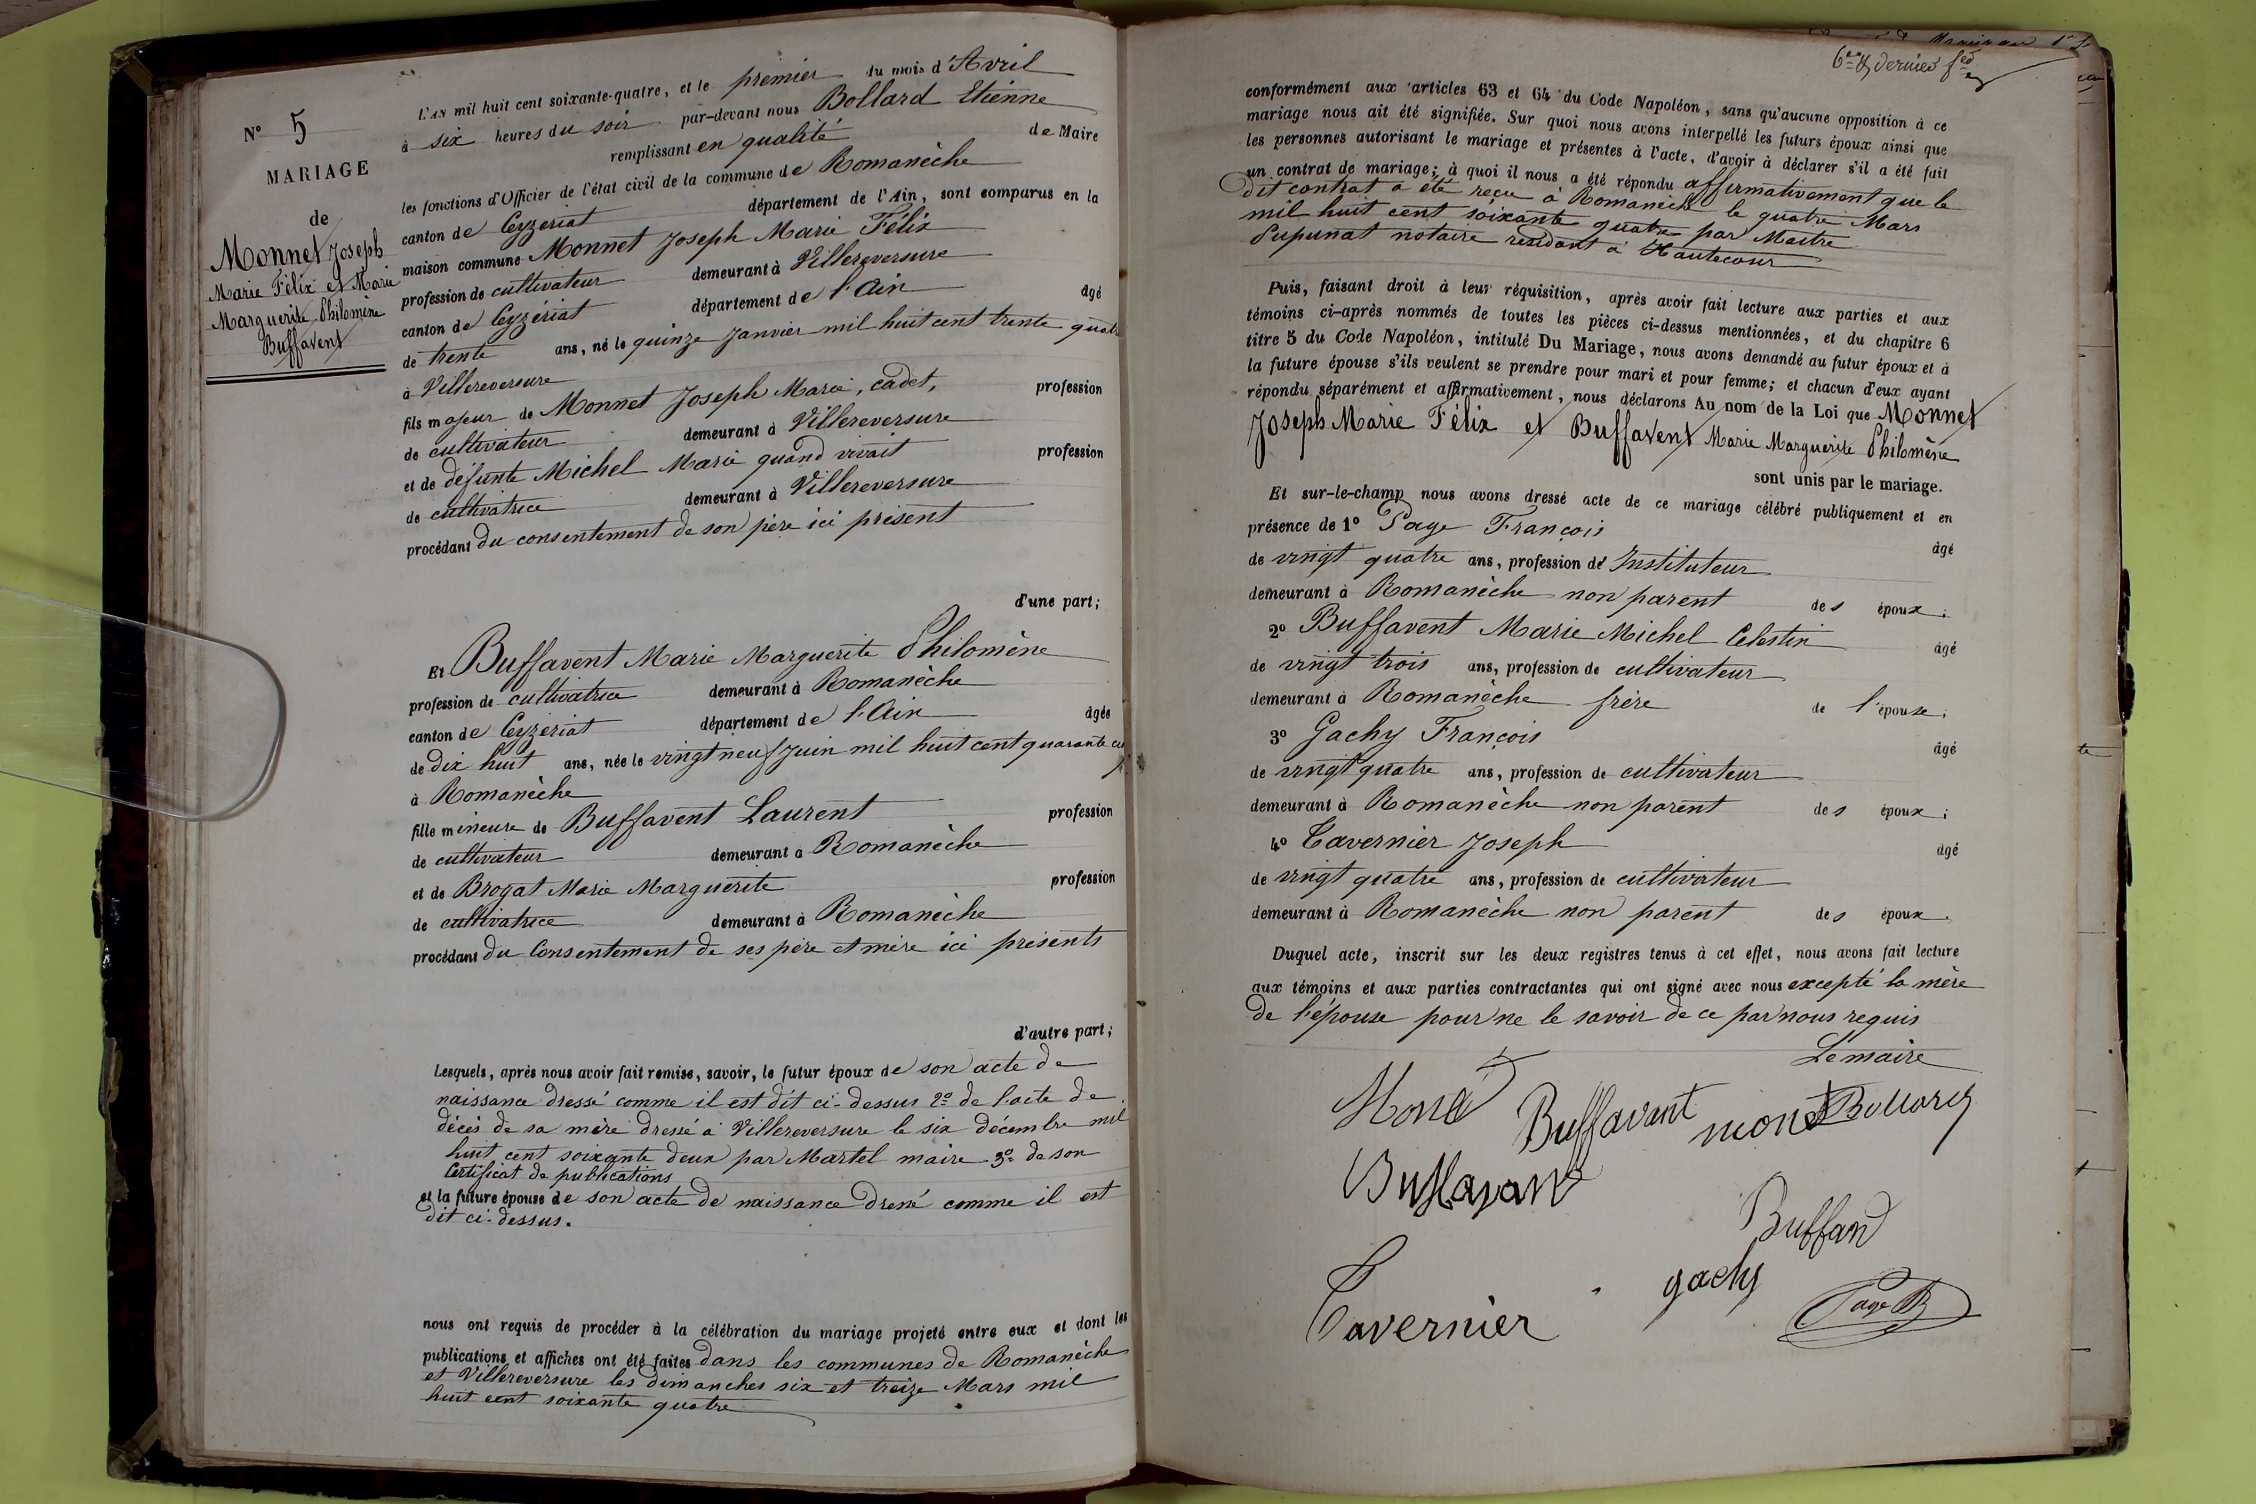 N° 5
MARIAGE
de
Monnet Joseph
Marie Félix et Marie
Marguerite Philomène
Buffavent
L'AN mil huit cent soixante-quatre, et le premier du mois d'Avril
à six heures du soir par-devant nous Bollard Etienne
remplissant en qualité de Maire
les fonctions d'Officier de l'état civil de la commune de Romanèche
canton de Ceyzeriat département de l'Ain, sont comparus en la
maison commune Monnet Joseph Marie Félix
profession de cultivateur demeurant à Villereversure
canton de Ceyzériat département de l'Ain âgé
de trente ans, né le quinze Janvier mil huit cent trente quatre
à Villereversure
fils majeur de Monnet Joseph Marie, cadet, profession
de cultivateur demeurant à Villereversure
et de défunte Michel Marie quand vivait profession
de cultivatrice demeurant à Villereversure
procédant du consentement de son père ici présent
d'une part;
Et Buffavent Marie Marguerite Philomène
profession de cultivatrice demeurant à Romanèche
canton de Ceyzeriat département de l'Ain âgée
de dix huit ans, née le vingt neuf Juin mil huit cent quarante
à Romanèche
fille mineure de Buffavent Laurent profession
de cultivateur demeurant a Romanèche
et de Brogat Marie Marguerite profession
de cultivatrice demeurant à Romanèche
procédant du Consentement de ses père et mère ici présents
d'autre part;
Lesquels, après nous avoir fait remise, savoir, le futur époux de son acte de
naissance dressé comme il est dit ci-dessus 2° de l'acte de
décès de sa mère dressé à Villereversure le six décembre mil
huit cent soixante deux par Martel maire 3° de son
Certificat de publications
et la future épouse de son acte de naissance dressé comme il est
dit ci-dessus.
nous ont requis de procéder à la célébration du mariage projeté entre eux et dont les
publications et affiches ont été faites dans les communes de Romanèche
et Villereversure les dimanches six et treize Mars mil
huit cent soixante quatre
6e & dernier
conformément aux articles 63 et 64 du Code Napoléon, sans qu'aucune opposition à ce
mariage nous ait été signifiée. Sur quoi nous avons interpellé les futurs époux ainsi que
les personnes autorisant le mariage et présentes à l'acte, d'avoir à déclarer s'il a été fait
un contrat de mariage; à quoi il nous a été répondu affirmativement que le
dit contrat a été reçu à Romanèche le quatre Mars
mil huit cent soixante quatre par Maitre
Pupunat notaire résidant à Hautecour
Puis, faisant droit à leur réquisition, après avoir fait lecture aux parties et aux
témoins ci-après nommés de toutes les pièces ci-dessus mentionnées, et du chapitre 6
titre 5 du Code Napoléon, intitulé Du Mariage, nous avons demandé au futur époux et à
la future épouse s'ils veulent se prendre pour mari et pour femme; et chacun d'eux ayant
répondu séparément et affirmativement, nous déclarons Au nom de la Loi que Monnet
Joseph Marie Félix et Buffavent Marie Marguerite Philomène
sont unis par le mariage.
Et sur-le-champ nous avons dressé acte de ce mariage célébré publiquement et en
présence de 1° Page François âgé
de vingt quatre ans, profession de Instituteur
demeurant à Romanèche non parent des époux;
2° Buffavent Marie Michel Celestin âgé
de vingt trois ans, profession de cultivateur
demeurant à Romanèche frère de l'épouse;
3° Gachy François âgé
de vingt quatre ans, profession de cultivateur
demeurant à Romanèche non parent des époux;
4° Tavernier Joseph âgé
de vingt quatre ans, profession de cultivateur
demeurant à Romanèche non parent des époux.
Duquel acte, inscrit sur les deux registres tenus à cet effet, nous avons fait lecture
aux témoins et aux parties contractantes qui ont signé avec nous excepté la mère
de l'épouse pour ne le savoir de ce par nous requis
Le maire
Buffavent monet Bollard
Buffavand
Buffand
gachy
Tavernier
Page